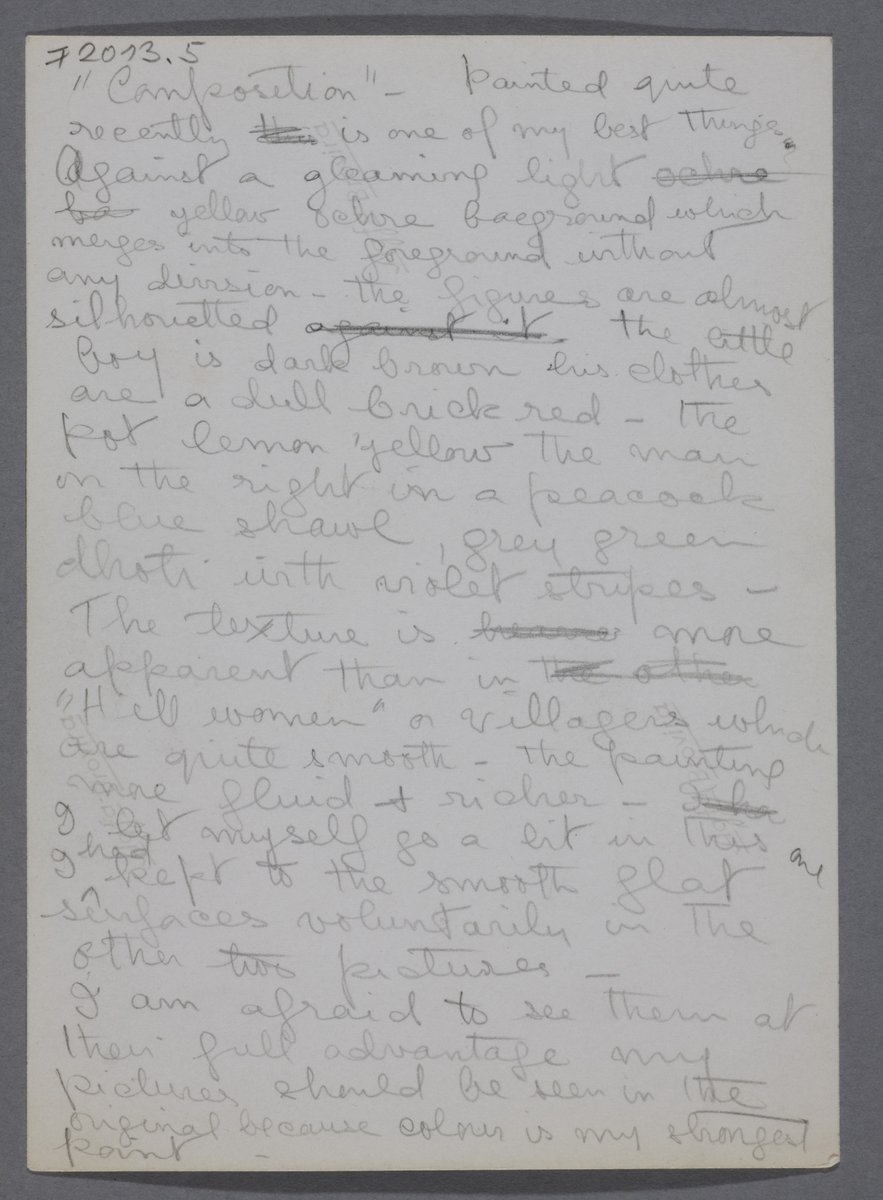 F2013.5
"Composition" – Painted quite
recently this is one of my best things.
Against a gleaming light ochre
ba yellow ochre bacground which
merges into the foreground without
any division – the figures are almost
silhouetted against it. the little
boy is dark brown his clothes
are a dull brick red – the
pot lemon yellow the man
on the right in a peacock
blue shawl, grey green
dhoti with violet stripes –
The texture is more
apparent than in the other
"Hill women" or Villagers which
are quite smooth – the painting
more fluid + richer – The
I let myself go a bit in this one
I had kept to the smooth flat
surfaces voluntarily in the
other two pictures –
I am afraid to see them at
their full advantage my
pictures should be seen in the
original because colour is my strongest
point –